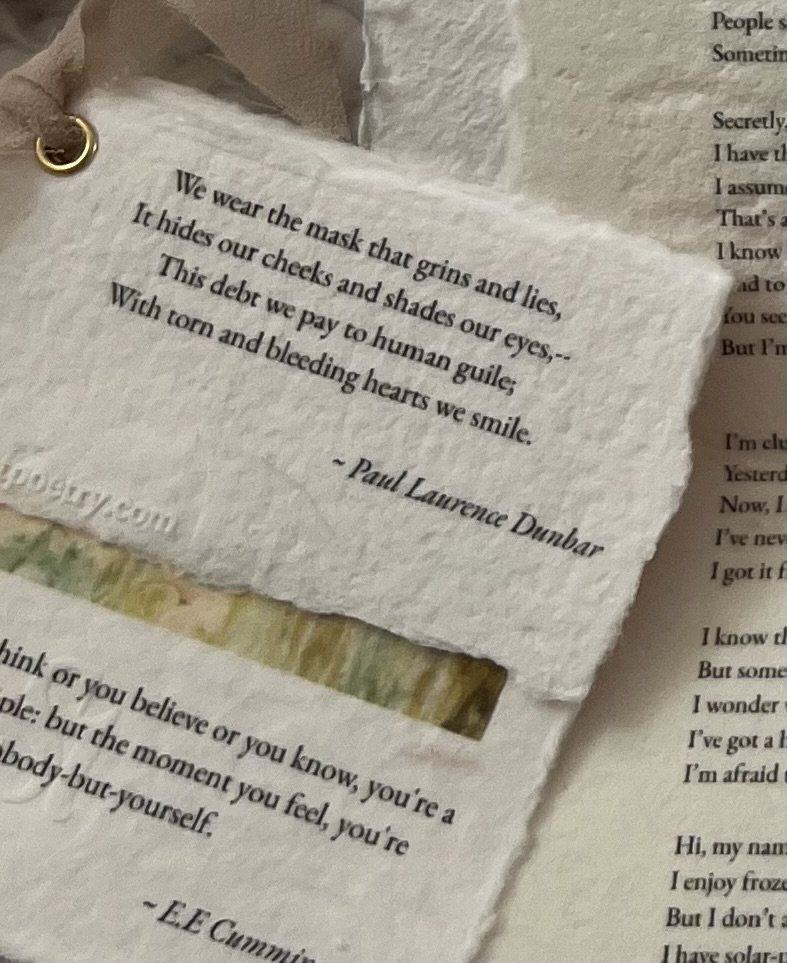 We wear the mask that grins and lies,
It hides our cheeks and shades our eyes,--
This debt we pay to human guile;
With torn and bleeding hearts we smile.
~ Paul Laurence Dunbar
poetry.com
hink or you believe or you know, you're a
ple: but the moment you feel, you're
body-but-yourself.
~ E.E Cummin
People s
Sometin
Secretly,
I have th
I assume
That's a
I know
ad to
You see
But I'm
I'm clu
Yesterd
Now, I
I've nev
I got it f
I know th
But some
I wonder
I've got a h
I'm afraid
Hi, my nam
I enjoy froze
But I don't a
I have solar-p